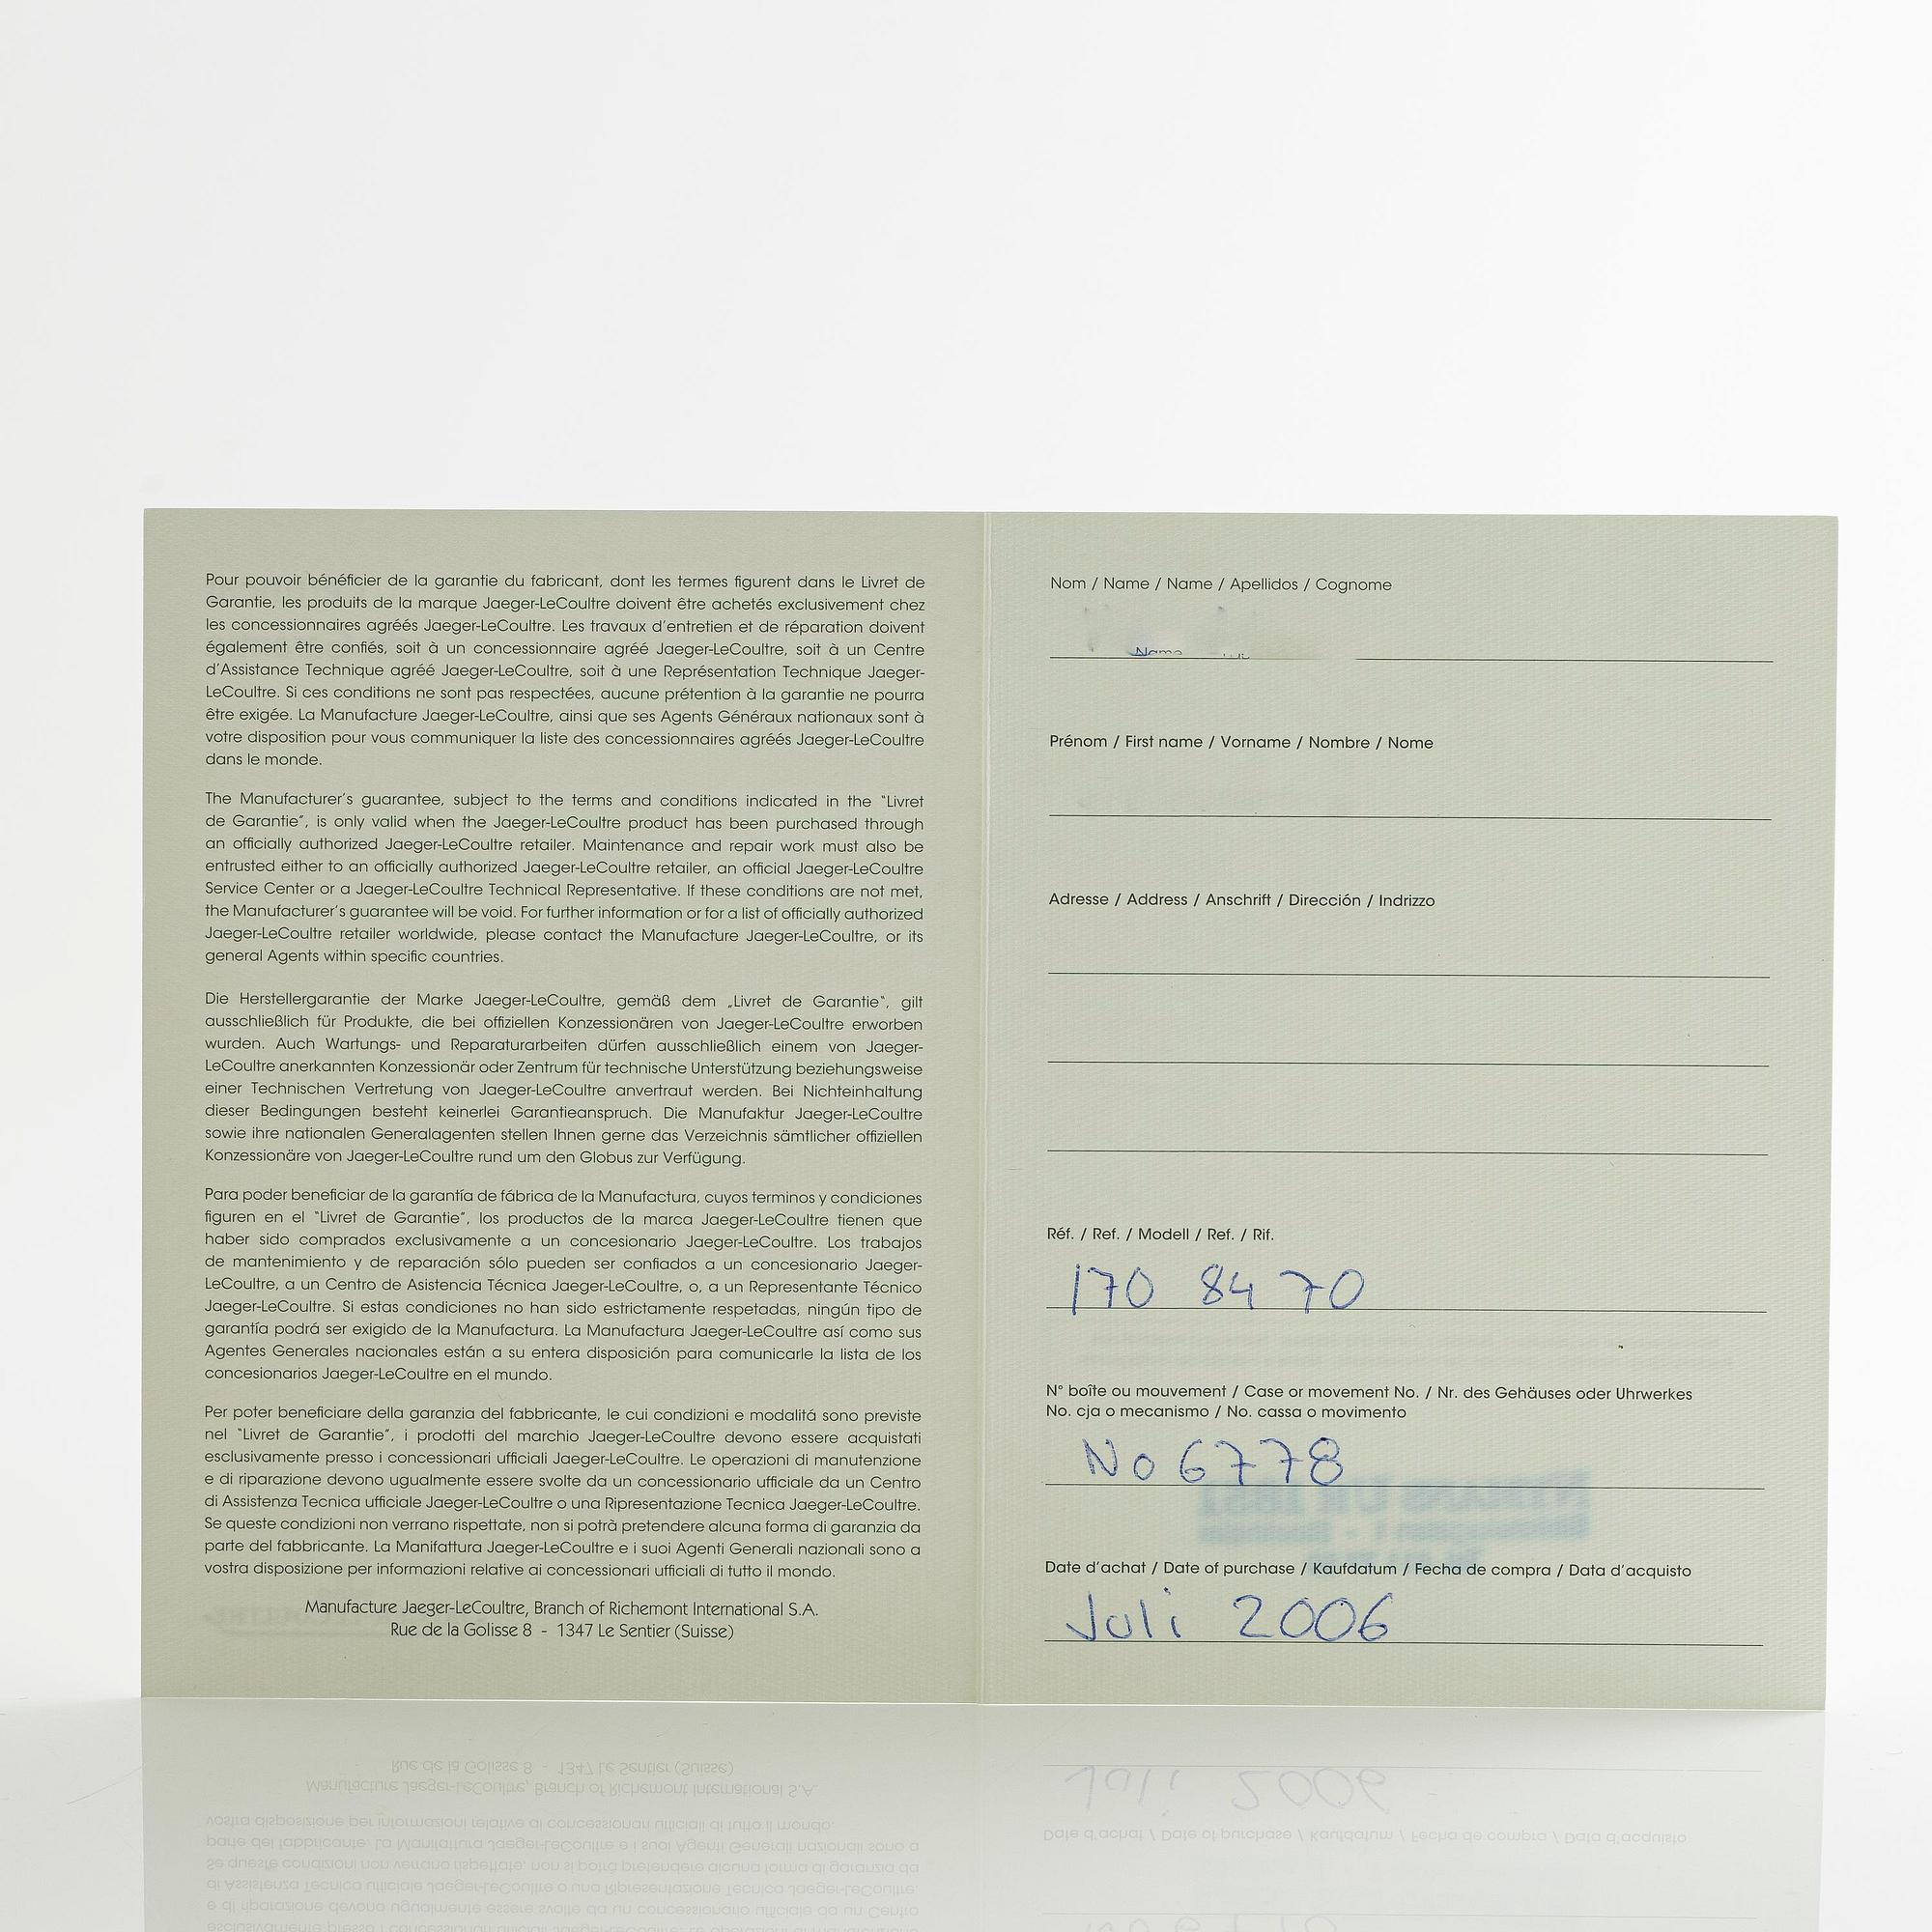 Pour pouvoir bénéficier de la garantie du fabricant, dont les termes figurent dans le Livret de
Garantie, les produits de la marque Jaeger-LeCoultre doivent être achetés exclusivement chez
les concessionnaires agréés Jaeger-LeCoultre. Les travaux d'entretien et de réparation doivent
également être confiés, soit à un concessionnaire agréé Jaeger-LeCoultre, soit à un Centre
d'Assistance Technique agréé Jaeger-LeCoultre, soit à une Représentation Technique Jaeger-
LeCoultre. Si ces conditions ne sont pas respectées, aucune prétention à la garantie ne pourra
être exigée. La Manufacture Jaeger-LeCoultre, ainsi que ses Agents Généraux nationaux sont à
votre disposition pour vous communiquer la liste des concessionnaires agréés Jaeger-LeCoultre
dans le monde.
The Manufacturer's guarantee, subject to the terms and conditions indicated in the "Livret
de Garantie", is only valid when the Jaeger-LeCoultre product has been purchased through
an officially authorized Jaeger-LeCoultre retailer. Maintenance and repair work must also be
entrusted either to an officially authorized Jaeger-LeCoultre retailer, an official Jaeger-LeCoultre
Service Center or a Jaeger-LeCoultre Technical Representative. If these conditions are not met,
the Manufacturer's guarantee will be void. For further information or for a list of officially authorized
Jaeger-LeCoultre retailer worldwide, please contact the Manufacture Jaeger-LeCoultre, or its
general Agents within specific countries.
Die Herstellergarantie der Marke Jaeger-LeCoultre, gemäß dem „Livret de Garantie", gilt
ausschließlich für Produkte, die bei offiziellen Konzessionären von Jaeger-LeCoultre erworben
wurden. Auch Wartungs- und Reparaturarbeiten dürfen ausschließlich einem von Jaeger-
LeCoultre anerkannten Konzessionär oder Zentrum für technische Unterstützung beziehungsweise
einer Technischen Vertretung von Jaeger-LeCoultre anvertraut werden. Bei Nichteinhaltung
dieser Bedingungen besteht keinerlei Garantieanspruch. Die Manufaktur Jaeger-LeCoultre
sowie ihre nationalen Generalagenten stellen Ihnen gerne das Verzeichnis sämtlicher offiziellen
Konzessionäre von Jaeger-LeCoultre rund um den Globus zur Verfügung.
Para poder beneficiar de la garantía de fábrica de la Manufactura, cuyos terminos y condiciones
figuren en el "Livret de Garantie", los productos de la marca Jaeger-LeCoultre tienen que
haber sido comprados exclusivamente a un concesionario Jaeger-LeCoultre. Los trabajos
de mantenimiento y de reparación sólo pueden ser confiados a un concesionario Jaeger-
LeCoultre, a un Centro de Asistencia Técnica Jaeger-LeCoultre, o, a un Representante Técnico
Jaeger-LeCoultre. Si estas condiciones no han sido estrictamente respetadas, ningún tipo de
garantía podrá ser exigido de la Manufactura. La Manufactura Jaeger-LeCoultre así como sus
Agentes Generales nacionales están a su entera disposición para comunicarle la lista de los
concesionarios Jaeger-LeCoultre en el mundo.
Per poter beneficiare della garanzia del fabbricante, le cui condizioni e modalitá sono previste
nel "Livret de Garantie", i prodotti del marchio Jaeger-LeCoultre devono essere acquistati
esclusivamente presso i concessionari ufficiali Jaeger-LeCoultre. Le operazioni di manutenzione
e di riparazione devono ugualmente essere svolte da un concessionario ufficiale da un Centro
di Assistenza Tecnica ufficiale Jaeger-LeCoultre o una Ripresentazione Tecnica Jaeger-LeCoultre.
Se queste condizioni non verrano rispettate, non si potrà pretendere alcuna forma di garanzia da
parte del fabbricante. La Manifattura Jaeger-LeCoultre e i suoi Agenti Generali nazionali sono a
vostra disposizione per informazioni relative ai concessionari ufficiali di tutto il mondo.
Manufacture Jaeger-LeCoultre, Branch of Richemont International S.A.
Rue de la Golisse 8 - 1347 Le Sentier (Suisse)
Nom / Name / Name / Apellidos / Cognome
Prénom / First name / Vorname / Nombre / Nome
Adresse / Address / Anschrift / Dirección / Indrizzo
Réf. / Ref. / Modell / Ref. / Rif.
170 84 70
N° boîte ou mouvement / Case or movement No. / Nr. des Gehäuses oder Uhrwerkes
No. cja o mecanismo / No. cassa o movimento
No 6778
Date d'achat / Date of purchase / Kaufdatum / Fecha de compra / Data d'acquisto
Juli 2006